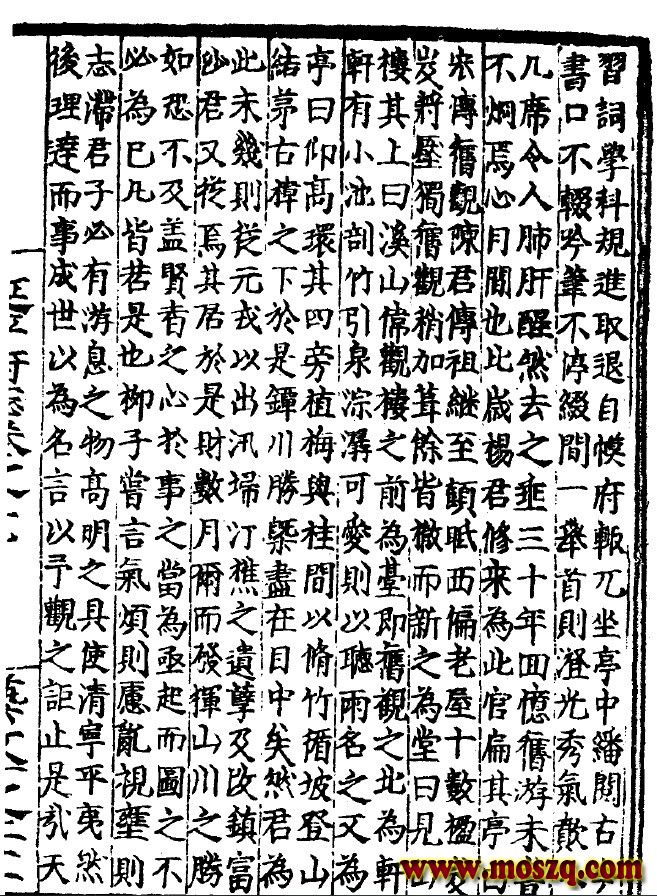 習詞學科規進取退自幙府輙兀坐亭中繙閱古
書口不輟吟筆不停綴間一舉首則澄光秀氣歕
几席令人肺肝醒然去之垂三十年囬憶舊游未
不炯焉心月間也比歲楊君修來為此官扁其亭
宋傳舊觀陳君傳祖繼至顧眂西偏老屋十數楹
岌將壓獨舊觀稍加葺餘皆撤而新之為堂曰見
樓其上曰溪山偉觀樓之前為臺即舊觀之北為軒
軒有小池剖竹引泉淙潺可愛則以聽雨名之又為
亭曰仰髙環其四旁植梅與桂間以脩竹循坡登山
結茅古樟之下於是鐔川勝槩盡在目中矣然君為
此未幾則從元戎以出汛埽汀樵之遺孽及改鎮富
沙君又從焉其居於是財數月爾而發揮山川之勝
如恐不及盖賢者之心於事之當為亟起而圖之不
必為已凡皆若是也柳子嘗言氣煩則慮亂視壅則
志滯君子必有游息之物髙明之具使清寧平夷然
後理達而事成世以為名言以予觀之詎止是㢤天
www.moszq.com